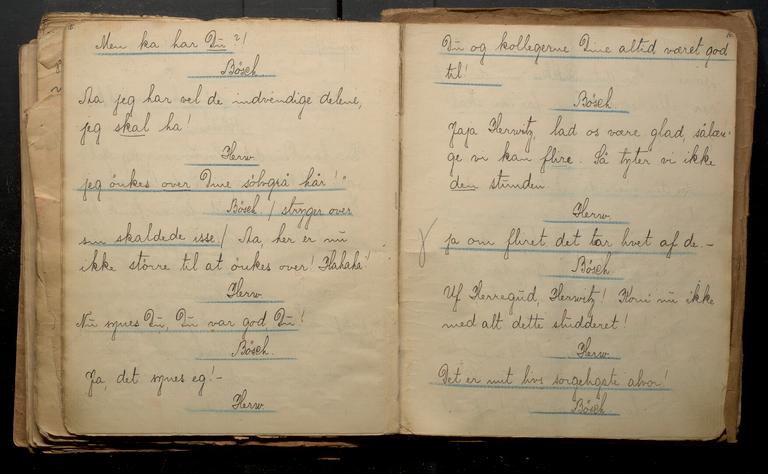 Men ka har Du?!
Bösch.
Aa, jeg har vel de indvendige delene,
jeg skal ha!
Herw.
jeg önkes over Dine sölvgrå hår!
Bösch / stryger over
sin skaldede isse / Aa, her er nu
ikke större til at önkes over! Hahaha!
Herw.
Nu synes Du, Du var god, Du!
Bösch.
Ja, det synes eg! -
Herw.
Du og kollegerne Dine altid været god
til!
Bösch
Jaja Herwitz, lad os være glad, sålæn-
ge vi kan flire. Så tyter vi ikke
den stunden
Herw.
ja om fliret det tar hvet af de. -
Bösch.
Uf Herregud, Herwitz! Kom nu ikke
med alt dette sludderet!
Herw.
Det er mit livs sorgeligste alvor!
Bösch.